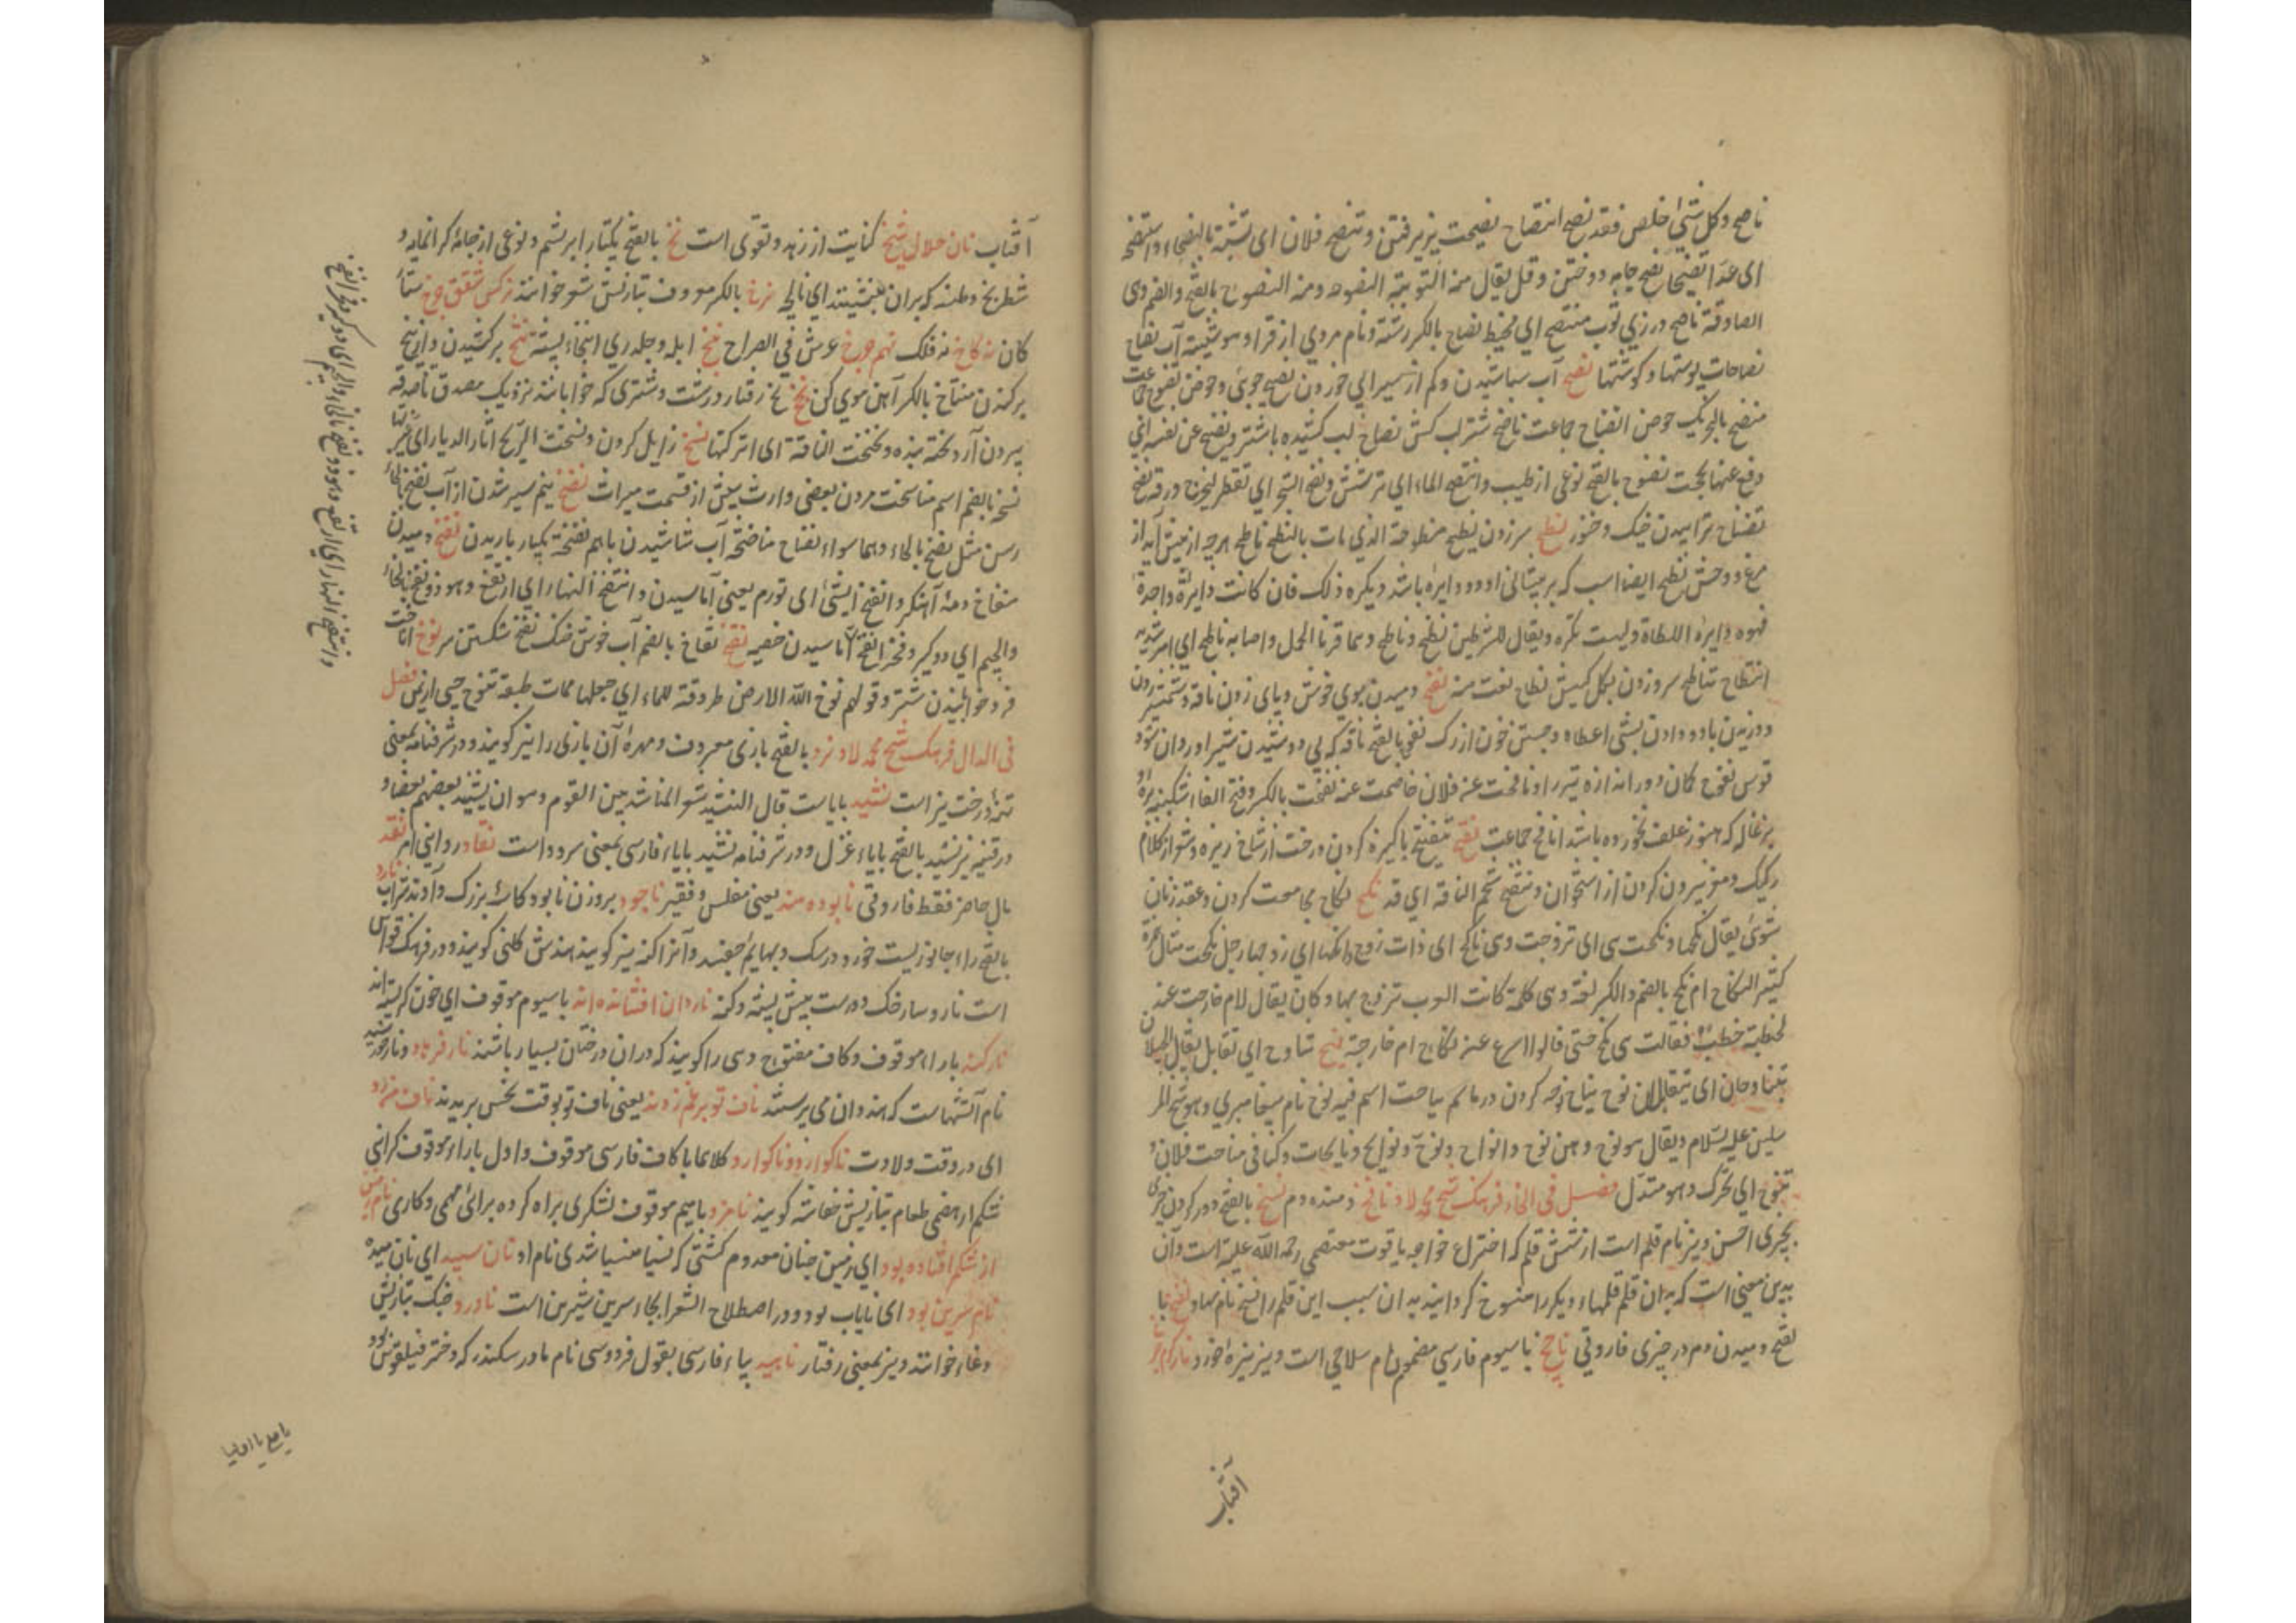 ناصح و کل شئ خلص فقد نصح انتصاح نصیحت پزیرفتن و تنصح فلان ای تشبه بالنصحاء و استنصحه
ای عده نصیحا نصح جامه دوختن و قل یقال منه التوبة النصوحه و منه النصوح بالفتح و الضم وی
الصادقة ناصح درزی ثوب منتصح ای مخیط نصاح بالکسر رشته و نام مردی از قراء و هو شیبة آب نصاح
نصاحات پوستها و گوشتها نضح آب پاشیدن و کم از سیرابی خوردن نضیح جوی و حوض نضوح جماعت
منضح بالتحریک حوض انضاح جماعت ناضح شتر آب کش نضاح آب کشیده باشتر و ینضح عن نفسه ای
دفع عنها بحجت نضوح بالفتح نوعی از طیب و انتضح الماء ای ترشش و نضح الشجر ای تفطر لیخرج ورقه نضح
تنضاح ترابیدن خیک و خنور نطح سر زدن نطیح منطوحة الذی مات بالنطح ناطح هرچه از پیش آید از
مرغ و وحش نطیح ایضا اسپ که بر پیشانی او دو دایره باشد و یکره ذلک فان کانت دایرة واحدة
فهوه دایرة اللطاة و لیست تکره و یقال للشرطین نطح و ناطح و هما قرنا الحمل و اصابه ناطح ای امر شدید
انتطاح تناطح سر و زدن بکل کبش نطاح نعت منه نفح دمیدن بوی خوش و پای زدن ناقه و شمشیر زدن
و وزیدن باد و دادن بشئ اعطاه و جستن خون از رگ نفح بالفتح ناقه که بی دوشیدن شیر او روان شود
قوس نفوح کمان دور اندازه تیر را و نافحت عنه فلان خاصمت عنه انفحت بالکسر و فتح الفا اشکنبه بره
بزغاله که هنوز علف نخورده باشد انافح جماعت نقح تنقیح پاکیزه کردن درخت از شاخ ریزه و شعر از کلام
رکیک و مغز بیرون کردن از استخوان و تنقح شحم الناقه ای قد نکح نکاح مجامعت کردن و عقد زنان
شوی یقال نکحها و نکحت هی ای تزوجت و هی ناکح ای ذات زوج و انکحها ای زوجها رجل نکحت مثال همزة
کثیر النکاح ام نکح بالضم و الکسر لغة و هی کلمة کانت العرب تزوج بها و کان یقال لام خارجت عند
لخطبة خطب فقالت هی نکح حتی قالوا اسرع عند نکاح ام خارجة نیح تناوح ای تقابل یقال الجبلان
یتناوحان ای یتقابلان نوح نیاح نوحه کردن در ماتم نیاحت اسم فیه نوح نام پیغامبری و هو شیخ المر
سلین علیه السلام و یقال هو نوح و هن نوح و انواح و نوح و نوایح و نایحات و کنا فی مناحت فلان
تنوح ای تحرک و هو متدل فصل فی الخاء فرهنگ شیخ محمد لاد نافخ دمنده دم نسخ بالفتح دور کردن چیزی
بچیزی احسن و نیز نام قلم است از شش قلم که اختراع خواجه یاقوت معتصمی رحمة الله علیه است و آن
بدین معنی است که بدان قلم قلمهاء دیگر را منسوخ گردانید بدان سبب این قلم را نسخ نام نهاد نفخ با
لفتح دمیدن دم در چیزی فاروقی ناچخ با سیوم فارسی مضموم نام سلاحی است و نیز نیزه خورد
آفتاب
آفتاب نان حلال شیخ کنایت از زهد و تقوی است نخ بالفتح یکتار ابریشم و نوعی از جامه گرانمایه و
شطرنج و جامه که بر آن بنشینند ای نالجه نرخ بالکسر معروف بتازیش سعر خوانند نرگس شفق چرخ ستا
کان نه کاخ نه فلک نهم چرخ عرش فی الصراح نبخ آبله و جدری انبخاء پشته نتخ برکشیدن و از بیخ
برکندن منتاخ بالکسر آهن موی کن نخ نخ رفتار درشت و شتری که خوابانند نزدیک مصدق تا صدقه
بیرون آرد نخة بنده و نخنخت الناقة ای ابرکتها نسخ زایل کردن و نسخت الریح آثار الدیار ای غیرتها
نسخه بالضم اسم مناسخت مردن بعضی وارث پیش از قسمت میراث نضخ نیم سیر شدن از آب نضخ بالحاء
رسن مثل نضح بالحاء و هما سواء نضاخ مناضخة آب شاشیدن باهم نضخة یکبار باریدن نفخ دمیدن
منفاخ دمه آهنگر و انتفخ الشئ ای تورم یعنی آماسیدن و انتفخ النهار ای ارتفع و هو ذو نفخ بالحاء
و الجیم ای ذو کبر و فخر انفخ آماسیدن خصیه نقخ نقاخ بالضم آب خوش خنک نقخ شکستن سر نوخ اناخت
فرو خوابانیدن شتر و قولهم نوخ الله الارض طروقة للماء ای جعلها مما تطیقه تنوخ حی از یمن فصل
فی الدال فرهنگ شیخ محمد لاد نرد بالفتح بازی معروف و مهره آن بازی را نیز گویند و در شرفنامه بمعنی
تنه درخت نیز است نشید بابات قال النشید شعر المتناشد بین القوم و هو ان ینشد بعضهم بعضا و
در قنیه نیز نشید بالفتح بایاء غزل و در شرفنامه نشید بایاء فارسی بمعنی سرود است نقاد روانی امر نقد
مال حاضر فقط فاروقی نابوده مند یعنی مفلس و فقیر ناجود بروزن نابود کاسه بزرگ و آوند شراب نارد
بالفتح راء جانوریست خورد در سگ و بهایم چفسد و آنرا کنه نیز گویند هندش کلنی گویند و در فرهنگ قواس
است نارد سارخک ده است بیش پشه و کنه ناردان افشانده اند با سیوم موقوف ای خون گریسته اند
نارکند با راء موقوف و کاف مفتوح دهی را گویند که در آن درختان بسیار باشند نار فرهاد و نار خورشید
نام آتشهاست که هندوان می پرستند ناف تو بر غم زدند یعنی ناف تو بوقت نحس بریدند ناف مزد
ای در وقت ولادت ناگوارد و ناگوارد کلاهما با کاف فارسی موقوف و اول با راء موقوف گرانی
شکم از هضمی طعام بتازیش خفاشه گویند نامزد با میم موقوف لشکری براه کرده برای مهمی و کاری
از شکم افتاده بود ای زمین چنان معدوم گشتی که نسیا منسیا شدی نام او نان سپید ای نان میده
نام سرین بود ای نایاب بود و در اصطلاح الشعرا بجاء سرین شیرین است ناورد جنگ بتازیش
وغاء خوانند و نیز بمعنی رفتار ناهید بیاء فارسی بقول فردوسی نام مادر سکندر که دختر فیلقوس بود
و انتفخ النهار ای ارتفع و هو ذو نفخ بالخاء و الجیم ای ذو کبر و فخر انفخ